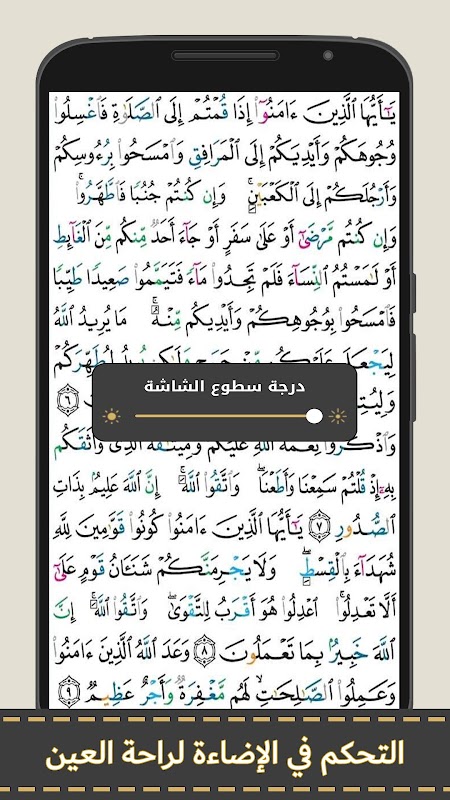 يَـٰٓأَيُّهَا ٱلَّذِينَ ءَامَنُوٓا۟ إِذَا قُمْتُمْ إِلَى ٱلصَّلَوٰةِ فَٱغْسِلُوا۟
وُجُوهَكُمْ وَأَيْدِيَكُمْ إِلَى ٱلْمَرَافِقِ وَٱمْسَحُوا۟ بِرُءُوسِكُمْ
وَأَرْجُلَكُمْ إِلَى ٱلْكَعْبَيْنِ ۚ وَإِن كُنتُمْ جُنُبًا فَٱطَّهَّرُوا۟ ۚ
وَإِن كُنتُم مَّرْضَىٰٓ أَوْ عَلَىٰ سَفَرٍ أَوْ جَآءَ أَحَدٌ مِّنكُم مِّنَ ٱلْغَآئِطِ
أَوْ لَـٰمَسْتُمُ ٱلنِّسَآءَ فَلَمْ تَجِدُوا۟ مَآءً فَتَيَمَّمُوا۟ صَعِيدًا طَيِّبًا
فَٱمْسَحُوا۟ بِوُجُوهِكُمْ وَأَيْدِيكُم مِّنْهُ ۚ مَا يُرِيدُ ٱللَّهُ
لِيَجْعَلَ عَلَيْكُم مِّنْ حَرَجٍ وَلَـٰكِن يُرِيدُ لِيُطَهِّرَكُمْ
وَلِيُتِمَّ ٦
درجة سطوع الشاشة
وَٱذْكُرُوا۟ نِعْمَةَ ٱللَّهِ عَلَيْكُمْ وَمِيثَـٰقَهُ ٱلَّذِى وَاثَقَكُم
بِهِۦٓ إِذْ قُلْتُمْ سَمِعْنَا وَأَطَعْنَا ۖ وَٱتَّقُوا۟ ٱللَّهَ ۚ إِنَّ ٱللَّهَ عَلِيمٌۢ بِذَاتِ
ٱلصُّدُورِ ٧ يَـٰٓأَيُّهَا ٱلَّذِينَ ءَامَنُوا۟ كُونُوا۟ قَوَّٰمِينَ لِلَّهِ
شُهَدَآءَ بِٱلْقِسْطِ ۖ وَلَا يَجْرِمَنَّكُمْ شَنَـَٔانُ قَوْمٍ عَلَىٰٓ
أَلَّا تَعْدِلُوا۟ ۚ ٱعْدِلُوا۟ هُوَ أَقْرَبُ لِلتَّقْوَىٰ ۖ وَٱتَّقُوا۟ ٱللَّهَ ۚ إِنَّ
ٱللَّهَ خَبِيرٌۢ بِمَا تَعْمَلُونَ ٨ وَعَدَ ٱللَّهُ ٱلَّذِينَ ءَامَنُوا۟
وَعَمِلُوا۟ ٱلصَّـٰلِحَـٰتِ ۙ لَهُم مَّغْفِرَةٌ وَأَجْرٌ عَظِيمٌ ٩
التحكم في الإضاءة لراحة العين